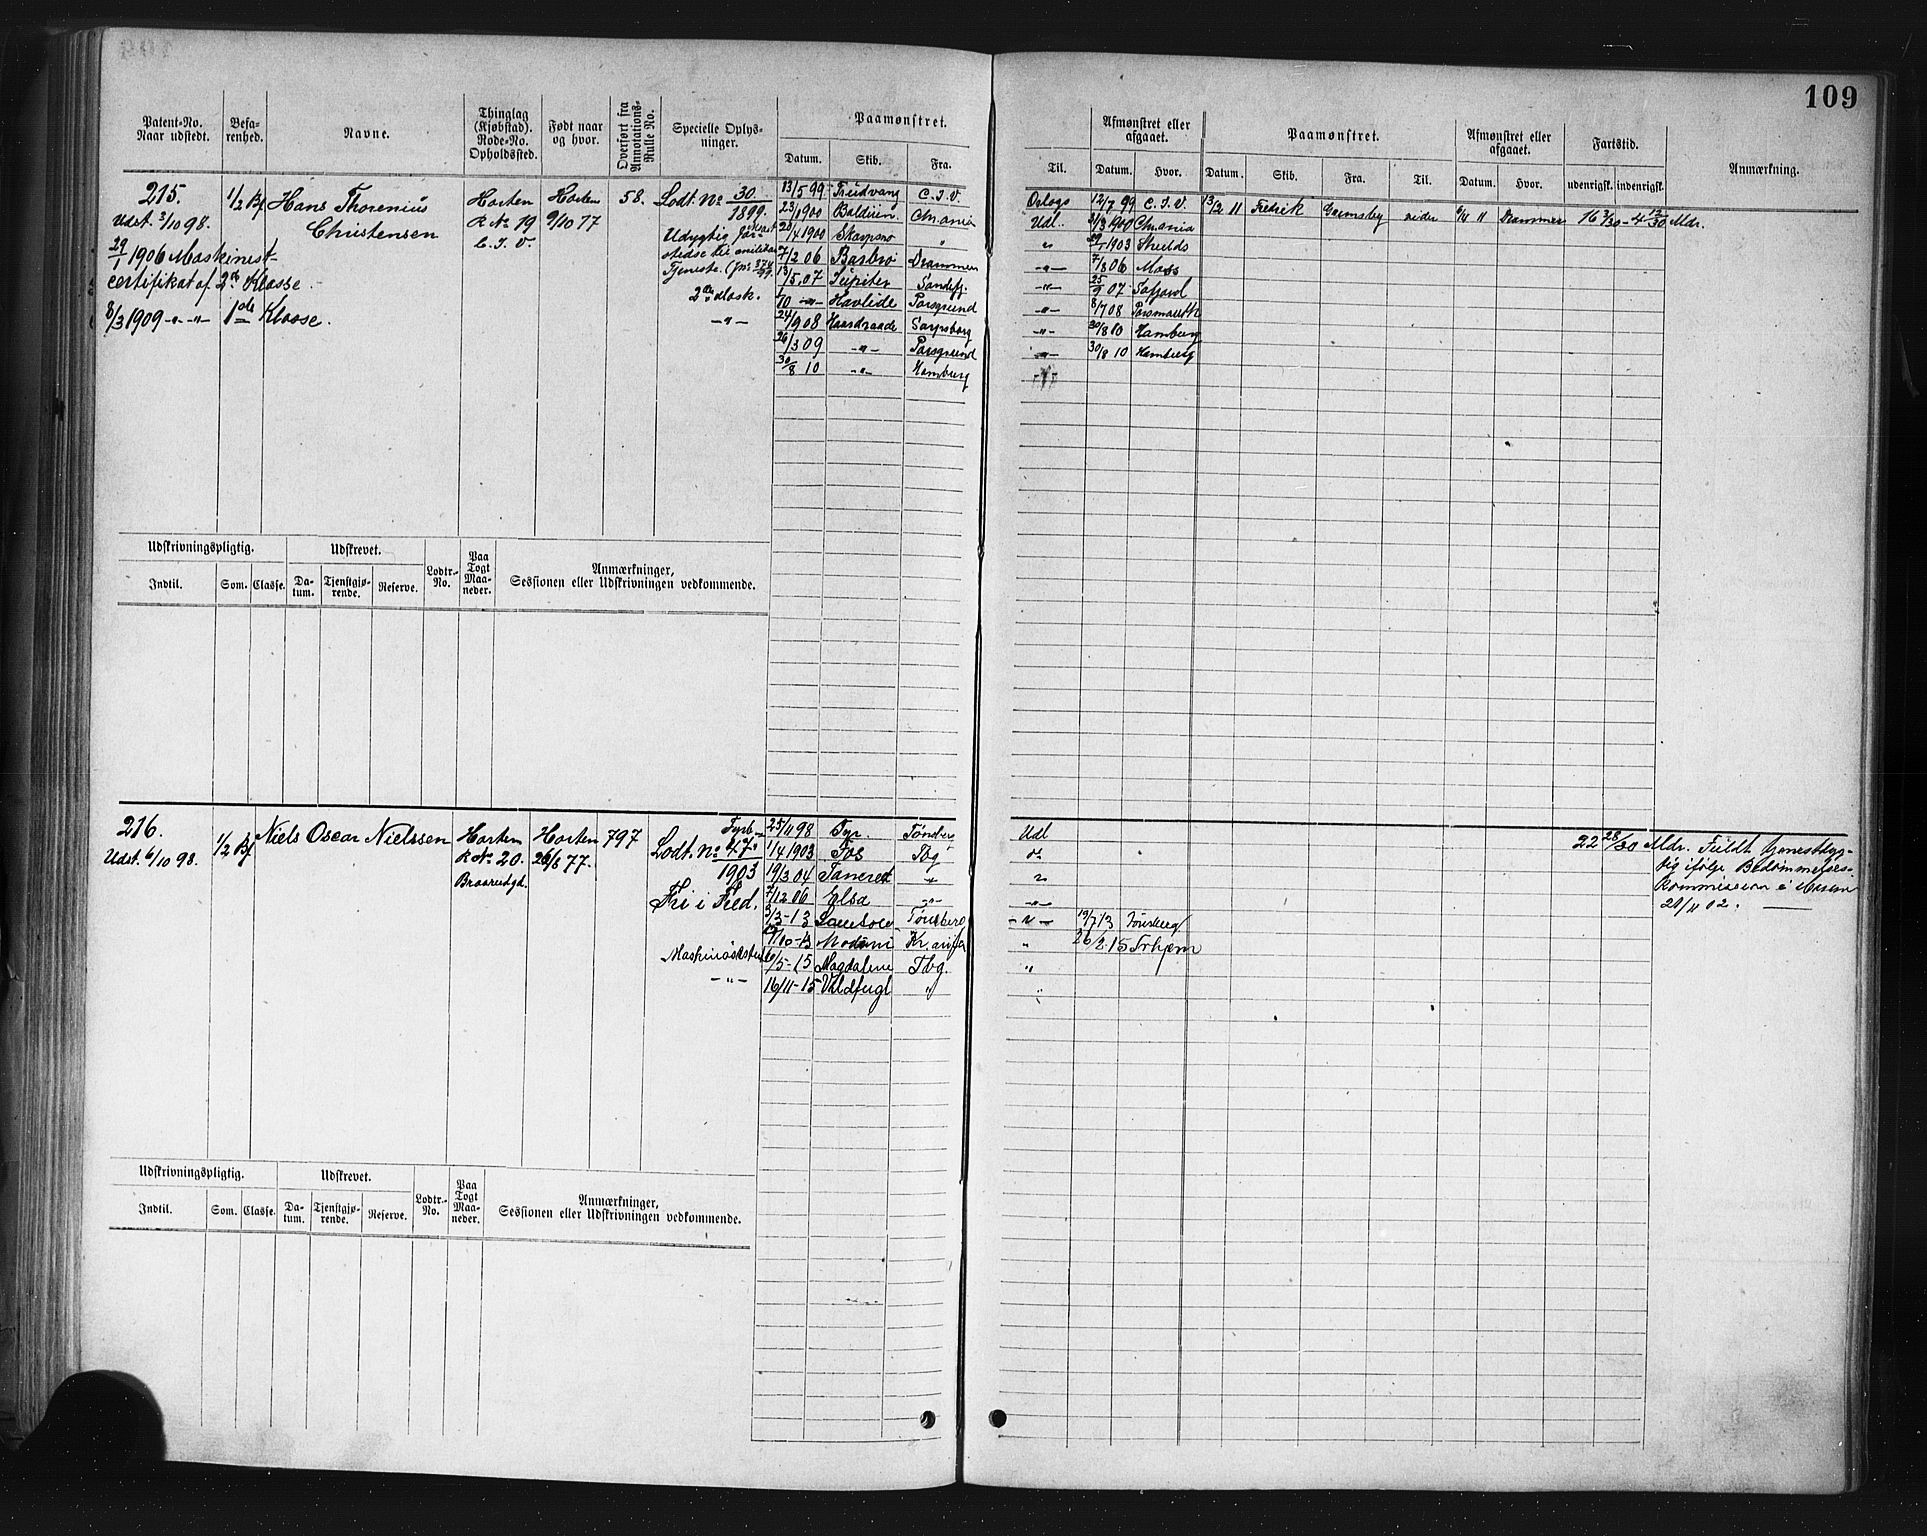 109
Patent-No. Naar udstedt.
Befarenhed.
Navne.
Thinglag (Kjøbstad). Rode-No. Opholdssted.
Født naar og hvor.
Overført fra Annotations-Rulle No.
Specielle Oplysninger.
Paamønstret.
Datum. Skib. Fra. Til.
Afmønstret eller afgaaet.
Datum. Hvor.
Paamønstret.
Datum. Skib. Fra. Til.
Afmønstret eller afgaaet.
Datum. Hvor.
Fartstid.
udenrigsk. indenrigsk.
Anmærkning.
215.
Udst. 3/10 98.
29/1 1906 Maskinist-
certifikat af 2den Klasse.
8/3 1909 -"- -"- 1ste Klasse.
1/2 Bf
Hans Thorenius
Christensen
Horten
R No 19
C. J. V.
Horten
9/10 77
58.
Lodt. No 30/1899.
Udygtig
Tjeneste.
2den Mask.
-"-
13/5 99 Trudvang C. J. V. Oslogs 12/7 99 C. J. V. 13/2 11 Fredrik Grimsby 6/4 11 Drammen 16 2/30 - 4 12/30 Mdr.
23/1 1900 Balduin Chrania Udl. 3/3 1900 Chrania
28/4 1900 Skarpsno " " 1903 Shields
7/2 06 Barbro Drammen -"- 7/8 06 Moss
13/5 07 Jupiter Sandefj. -"- 25/9 07
10 -"- Havlide Porsgrund -"- 8/7 08
24/9 08 Haardraade Sarpsborg -"- 30/8 10 Hamburg
26/3 09 -"- Porsgrund -"- 30/8 10 Hamburg
30/8 10 -"- Hamburg
Udskrivningspligtig.
Indtil. Som. Classe.
Udskrevet.
Datum. Tjenstgjørende. Reserve.
Lodtr.-No.
Paa Togt Maaneder.
Anmærkninger,
Sessionen eller Udskrivningen vedkommende.
216.
Udst. 6/10 98.
1/2 Bf
Niels Oscar Nielssen
Horten
R No 20.
Horten
26/8 77.
797
Fyrb.
Lodt. No 47.
1903
Fri i Fred.
-"-
25/11 98 Tyr. Tønsberg Udl 22 28/30 Mdr. Fuldt tjenestdyg-
1/4 1903 Fos Tbg tig ifølge Bedømmelses-
19/3 04 Tancred " Kommission i
7/12 06 Elsa -"- -"- 20/11 02.
3/3-13 Tønsberg -"- 19/7 13 Tønsberg
/10-13 Kr.ania " 26/2 15
/5-15 Magdalene Tbg. "
16/11-15 Vildfugl " "
Udskrivningspligtig.
Indtil. Som. Classe.
Udskrevet.
Datum. Tjenstgjørende. Reserve.
Lodtr.-No.
Paa Togt Maaneder.
Anmærkninger,
Sessionen eller Udskrivningen vedkommende.